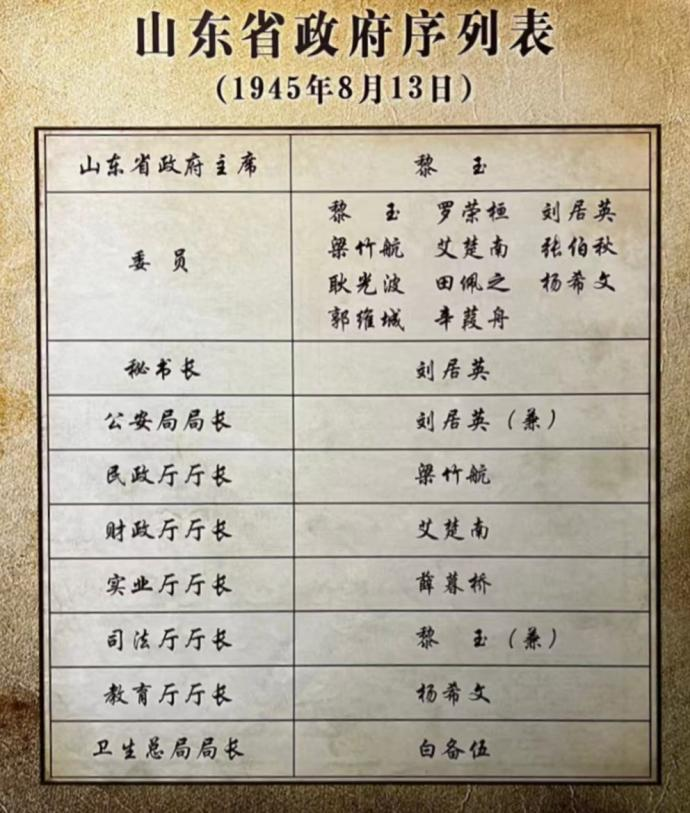 山东省政府序列表
(1945年8月13日)
山东省政府主席 黎 玉
委 员 黎 玉 罗荣桓 刘居英
梁竹航 艾楚南 张伯秋
耿光波 田佩之 杨希文
郭维城 辛葭舟
秘书长 刘居英
公安局局长 刘居英(兼)
民政厅厅长 梁竹航
财政厅厅长 艾楚南
实业厅厅长 薛暮桥
司法厅厅长 黎 玉(兼)
教育厅厅长 杨希文
卫生总局局长 白备伍